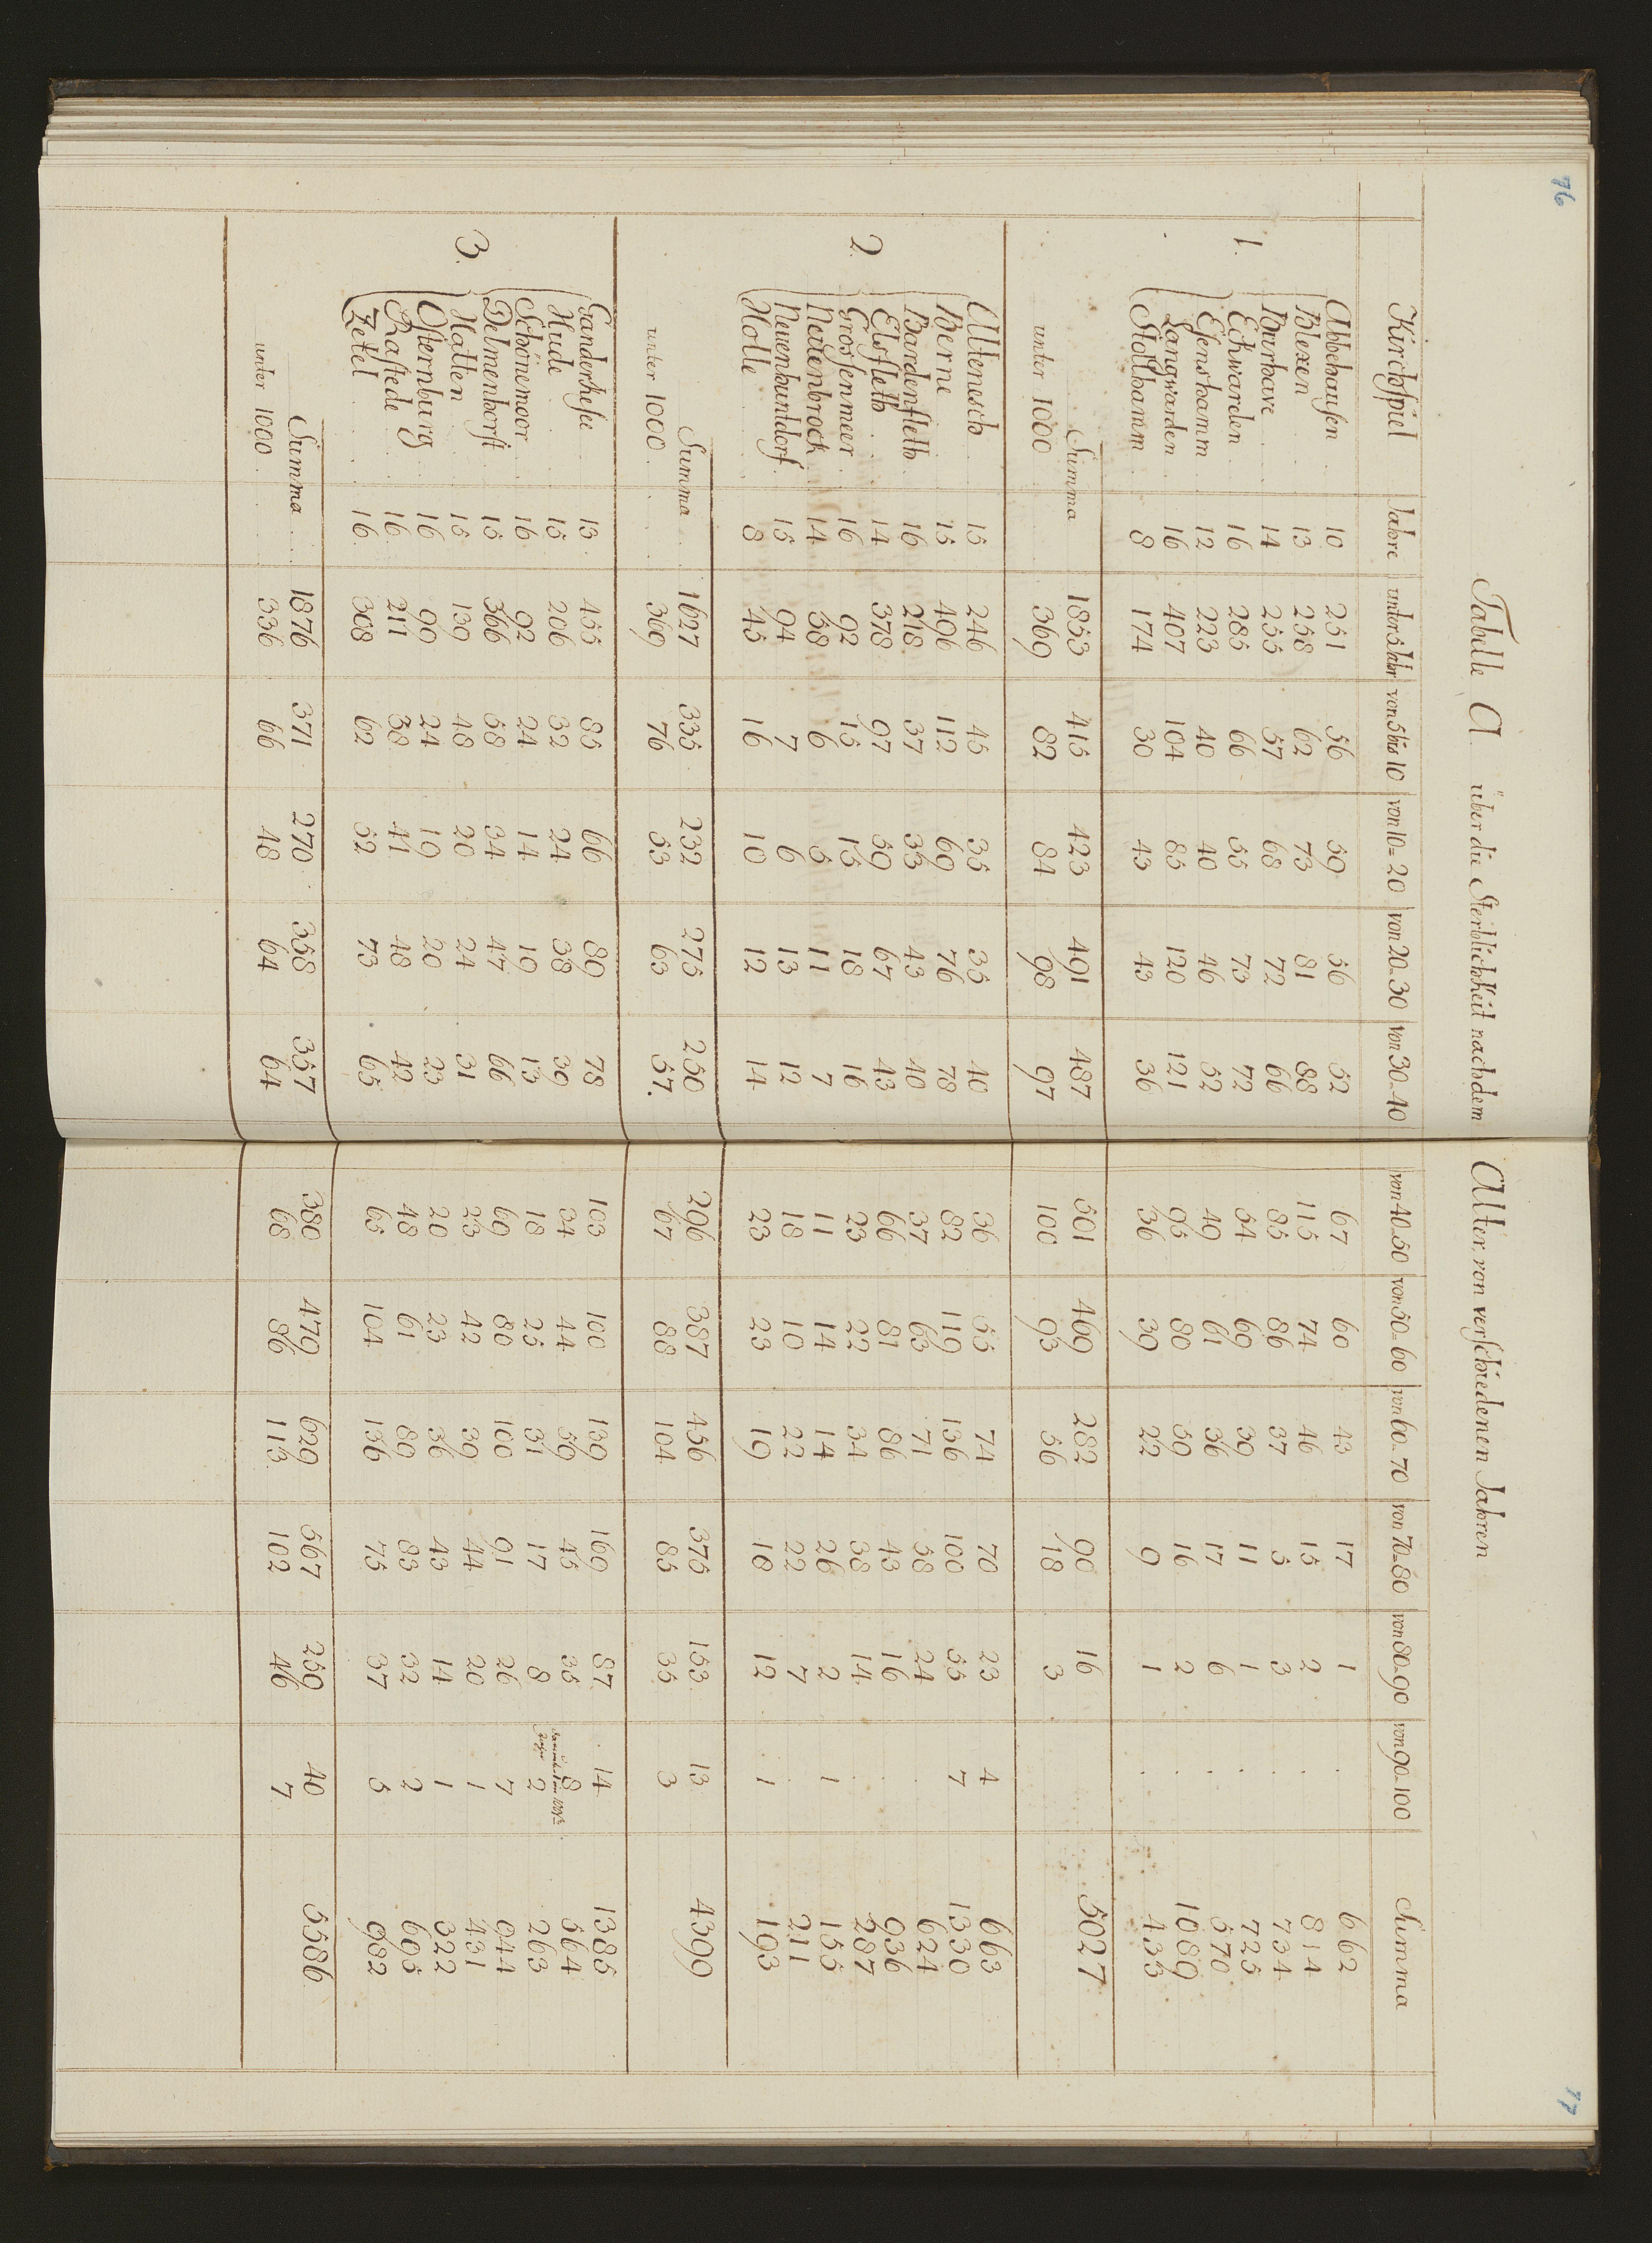 76
77
Tabelle A. über die Sterblichkeit nach dem Alter, von verschiedenen Jahren
Kirchspiel Jahre unter 5 Jahr von 5 bis 10 von 10-20 von 20-30 von 30-40 von 40-50 von 50-60 von 60-70 von 70-80 von 80-90 von 90-100 Summa
1.
Abbehausen 10 251 56 59 56 52 67 60 43 17 1 . 662
Blexen 13 258 62 73 81 88 115 74 46 15 2 . 814
Burhave 14 255 57 68 72 66 85 86 37 5 3 . 734
Eckwarden 16 285 66 55 73 72 54 69 39 11 1 . 725
Esenshamm 12 223 40 40 46 52 49 61 36 17 6 . 570
Langwarden 16 407 104 85 120 121 95 80 59 16 2 . 1089
Stollhamm 8 174 30 43 43 36 36 39 22 9 1 . 433
Summa 1853 415 423 491 487 501 469 282 90 16 5027
unter 1000 369 82 84 98 97 100 93 56 18 3
2.
Altenesch 15 246 45 35 35 40 36 55 74 70 23 4 663
Berne 15 496 112 69 76 78 82 119 136 100 55 7 1330
Bardenfleth 16 218 37 33 43 40 37 63 71 58 24 . 624
Elsfleth 14 378 97 59 67 43 66 81 86 43 16 . 936
Grossenmeer 16 92 15 15 18 16 23 22 34 38 14 . 287
Neuenbrock 14 58 6 5 11 7 11 14 14 26 2 1 155
Neuenhuntdorf 15 94 7 6 13 12 18 10 22 22 7 . 211
Holle 8 45 16 10 12 14 23 23 19 18 12 1 193
Summa 1627 335 232 275 250 296 387 456 375 153 13 4399
unter 1000 369 76 53 63 57. 67 88 104 85 35 3
3.
Ganderkesee 13 455 85 66 89 78 103 100 139 169 87 14 1385
Hude 15 206 32 24 38 39 34 44 59 45 35 8 564
Schönemoor 16 92 24 14 19 13 18 25 31 17 8 2 263
Delmenhorst 15 366 58 34 47 66 69 80 100 91 26 7 944
Hatten 15 139 48 20 24 31 23 42 39 44 20 1 431
Osternburg 16 99 24 19 20 23 20 23 36 43 14 1 322
Rastede 16 211 38 41 48 42 48 61 89 83 32 2 695
Zetel 16 308 62 52 73 65 65 104 136 75 37 5 982
Summa 1876 371 270 358 357 380 479 629 567 259 40 5586
unter 1000 336 66 48 64 64 68 86 113 102 46 7